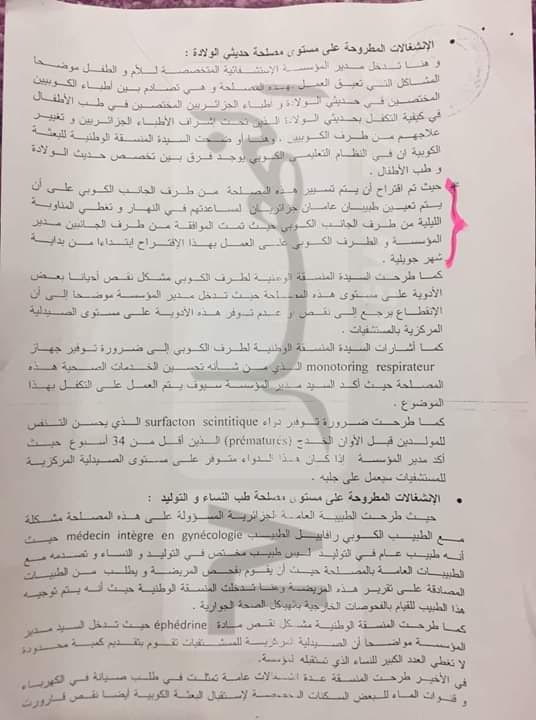 • الإنشغالات المطروحة على مستوى مصلحة حديثي الولادة :
و هنا تدخل مدير المؤسسة الإستشفائية المتخصصة للأم و الطفل موضحا
المشاكل التي تعيق العمل بهذه المصلحة و هي تصادم بين أطباء الكوبيين
المختصين في حديثي الولادة و أطباء الجزائريين المختصين في طب الأطفال
في كيفية التكفل بحديثي الولادة الذين تحت إشراف الأطباء الجزائريين و تغيير
علاجهم من طرف الكوبيين . وهنا أوضحت السيدة المنسقة الوطنية للبعثة
الكوبية ان في النظام التعليمي الكوبي يوجد فرق بين تخصص حديث الولادة
و طب الأطفال .
حيث تم اقتراح أن يتم تسيير هذه المصلحة من طرف الجانب الكوبي على أن
يتم تعيين طبيبان عامان جزائريان لمساعدتهم في النهار و تغطي المناوبة
الليلية من طرف الجانب الكوبي حيث تمت الموافقة من طرف الجانبين مدير
المؤسسة و الطرف الكوبي على العمل بهذا الإقتراح إبتداءا من بداية
شهر جويلية .
كما طرحت السيدة المنسقة الوطنية لطرف الكوبي مشكل نقص أحيانا بعض
الأدوية على مستوى هذه المصلحة حيث تدخل مدير المؤسسة موضحا إلى أن
الإنقطاع يرجع إلى نقص و عدم توفر هذه الأدوية على مستوى الصيدلية
المركزية بالمستشفيات .
كما أشارات السيدة المنسقة الوطنية لطرف الكوبي إلى ضرورة توفير جهاز
monotoring respirateur الذي من شأنه تحسين الخدمات الصحية هذه
المصلحة حيث أكد السيد مدير المؤسسة سيوف يتم العمل على التكفل بهذا
الموضوع .
كما طرحت ضرورة توفير دواء surfacton scintitique الذي يحسن التنفس
للمولدين قبل الأوان الخدج (prématurés) الذين أقل من 34 أسبوع حيث
أكد مدير المؤسسة إذا كان هذا الدواء متوفر على مستوى الصيدلية المركزية
للمستشفيات سيعمل على جلبه .
• الإنشغالات المطروحة على مستوى مصلحة طب النساء و التوليد :
حيث طرحت الطبيبة العامة الجزائرية المسؤولة على هذه المصلحة مشكلة
مع الطبيب الكوبي رافاييل الطبيب médecin intègre en gynécologie حيث
أنه طبيب عام في التوليد ليس طبيب مختص في التوليد و النساء و تصدمه مع
الطبيبات العامة بالمصلحة حيث أن يقوم بفحص المريضة و يطلب من الطبيبات
المصادقة على تقرير هذه المريضة وهنا تدخلت المنسقة الوطنية حيث أنه يتم توجيه
هذا الطبيب للقيام بالفحوصات الخارجية بالهياكل الصحة الجوارية .
كما طرحت المنسقة الوطنية مشكل نقص مادة éphédrine حيث تدخل السيد مدير
المؤسسة مواضحا أن الصيدلية المركزية للمستشفيات تقوم بتقديم كمية محدودة
لا تغطي العدد الكبير للنساء الذي تستقبله المؤسسة.
في الأخير طرحت المنسقة عدة إنشغالات عامة تمثلت في طلب صيانة في الكهرباء
و قنوات الماء للبعض السكنات المخصصة لإستقبال البعثة الكوبية أيضا نقص قارورت